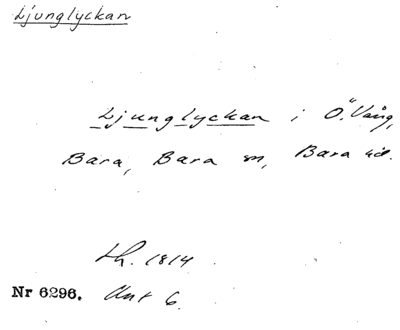 Ljunglyckan
Ljunglyckan i Ö. Vång,
Bara, Bara sn, Bara hd.
Lh. 1814
Nr 6296. Akt 6.